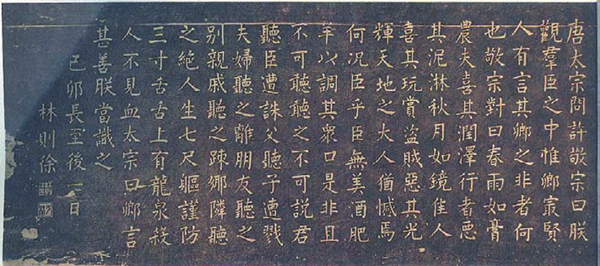 唐太宗問許敬宗曰朕
觀羣臣之中惟卿冣賢
人有言其卿之非者何
也敬宗對曰春雨如膏
農夫喜其潤澤行者惡
其泥淋秋月如鏡佳人
喜其玩賞盜賊惡其光
輝天地之大人猶憾焉
何況臣乎臣無美酒肥
羊以調其衆口是非且
不可聽聽之不可說君
聽臣遭誅父聽子遭戮
夫婦聽之離朋友聽之
別親戚聽之疎鄉隣聽
之絕人生七尺軀謹防
三寸舌舌上有龍泉殺
人不見血太宗曰卿言
甚善朕當識之
己卯長至後日
林則徐